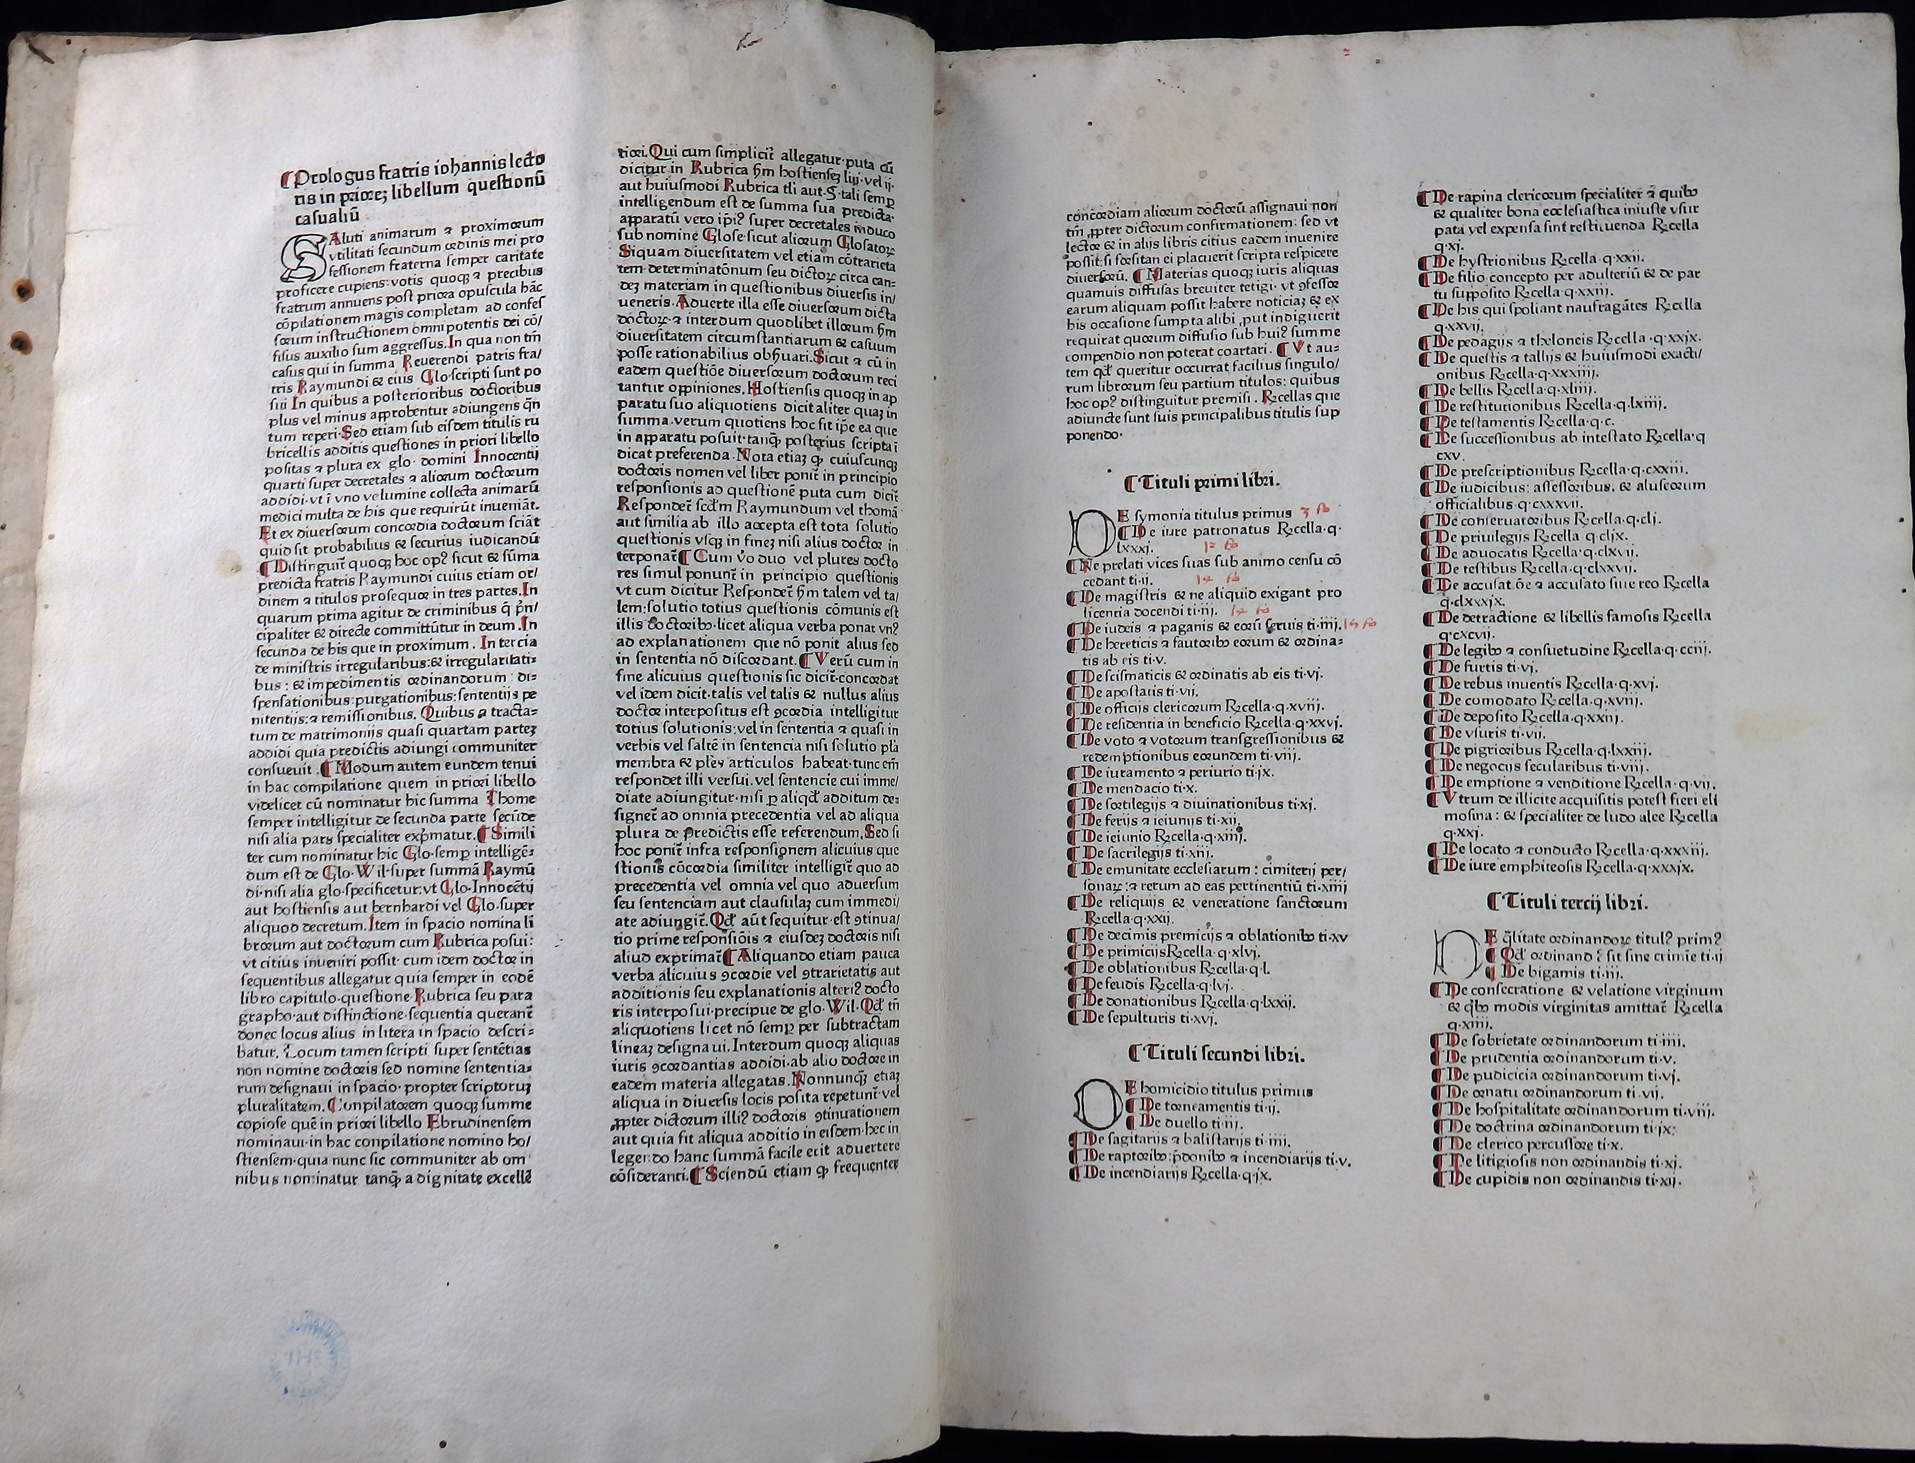 ¶Prologus fratris iohannis lecto
ris in priorez libellum questionū
casualiū
SAluti animarum ⁊ proximorum
vtilitati secundum ordinis mei pro
fessionem fraterna semper caritate
proficere cupiens: votis quoqꝫ ⁊ precibus
fratrum annuens post priora opuscula hāc
cōpilationem magis completam ad confes
sorum instructionem omnipotentis dei cō/
fisus auxilio sum aggressus. In qua non tm̄
casus qui in summa Reuerendi patris fra/
tris Raymundi & eius Glo·scripti sunt po
sui In quibus a posterioribus doctoribus
plus vel minus approbentur adiungens qn̄
tum reperi·Sed etiam sub eisdem titulis ru
bricellis additis questiones in priori libello
positas ⁊ plura ex glo· domini Innocentij
quarti super decretales ⁊ aliorum doctorum
addidi·vt ī vno velumine collecta animarū
medici multa de his que requirūt inueniāt.
Et ex diuersorum concordia doctorum sciāt
quid sit probabilius & securius iudicandū
¶Distinguit̄ quoqꝫ hoc opꝰ sicut & sūma
predicta fratris Raymundi cuius etiam or/
dinem ⁊ titulos prosequor in tres partes. In
quarum prima agitur de criminibus q̄ pn̄/
cipaliter & directe committūtur in deum. In
secunda de his que in proximum. In tercia
de ministris irregularibus: & irregularitati=
bus: & impedimentis ordinandorum: di=
spensationibus: purgationibus: sententijs pe
nitentijs: ⁊ remissionibus. Quibus ⁊ tracta=
tum de matrimonijs quasi quartam partez
addidi quia predictis adiungi communiter
consueuit. ¶Modum autem eundem tenui
in hac compilatione quem in priori libello
videlicet cū nominatur hic summa Thome
semper intelligitur de secunda parte secūde
nisi alia pars specialiter exp̄matur. ¶Simili
ter cum nominatur hic Glo·semp intelligē=
dum est de Glo·Wil·super summā Raymū
di·nisi alia glo·specificetur: vt Glo·Innocētij
aut hostiensis aut bernhardi vel Glo·super
aliquod decretum. Item in spacio nomina li
brorum aut doctorum cum Rubrica posui:
vt citius inueniri possit·cum idem doctor in
sequentibus allegatur quia semper in eodē
libro capitulo·questione Rubrica seu para
grapho·aut distinctione·sequentia querant̄
donec locus alius in litera in spacio descri=
batur. Locum tamen scripti super sentētias
non nomine doctoris sed nomine sententia=
rum designaui in spacio·propter scriptoruꝫ
pluralitatem. Conpilatorem quoqꝫ summe
copiose quē in priori libello Ebrudinensem
nominaui·in hac conpilatione nomino ho/
stiensem·quia nunc sic communiter ab om
nibus nominatur tanqꝫ a dignitate excellē
tiori. Qui cum simplicit̄ allegatur·puta cū
dicitur in Rubrica hm̄ hostiensez liij·vel ij·
aut huiusmodi Rubrica tli aut·§·tali semp
intelligendum est de summa sua predicta·
apparatū vero ip̄iꝰ super decretales induco
sub nomine Glose·sicut aliorum Glosatorꝫ
Siquam diuersitatem vel etiam cōtrarieta
tem determinatōnum seu dictorꝫ circa ean=
dez materiam in questionibus diuersis in/
ueneris. Aduerte illa esse diuersorum dicta
doctorꝫ·⁊ interdum quodlibet illorum hm̄
diuersitatem circumstantiarum & casuum
posse rationabilius obhuari. Sicut ⁊ cū in
eadem questiōe diuersorum doctorum reci
tantur oppiniones. Hostiensis quoqꝫ in ap
paratu suo aliquotiens dicit aliter quaꝫ in
summa·verum quotiens hoc fit ip̄e ea que
in apparatu posuit·tanqꝫ posterius scripta ī
dicat preferenda. Nota etiaꝫ qꝫ cuiuscunqꝫ
doctoris nomen vel liber ponit̄ in principio
responsionis ad questionē puta cum dicit̄
Respondet̄ scd̄m Raymundum vel thomā
aut similia ab illo accepta est tota solutio
questionis vsqꝫ in finez nisi alius doctor in
terponat̄ ¶Cum v̊o duo vel plures docto
res simul ponunt̄ in principio questionis
vt cum dicitur Respondet̄ hm̄ talem vel ta/
lem: solutio totius questionis cōmunis est
illis doctoribꝰ·licet aliqua verba ponat vnꝰ
ad explanationem que nō ponit alius sed
in sententia nō discordant. ¶Verū cum in
fine alicuius questionis sic dicit̄·concordat
vel idem dicit·talis vel talis & nullus alius
doctor interpositus est ꝯcordia intelligitur
totius solutionis: vel in sententia ⁊ quasi in
verbis vel saltē in sentencia nisi solutio pl̄a
membra & ples articulos habeat·tunc em̄
respondet illi versui·vel sentencie cui imme/
diate adiungitur·nisi p aliqd̄ additum de=
signet̄ ad omnia precedentia vel ad aliqua
plura de predictis esse referendum. Sed si
hoc ponit̄ infra responsionem alicuius que
stionis cōcordia similiter intelligit̄ quo ad
precedentia vel omnia vel quo aduersum
seu sentenciam aut clausulaꝫ cum immedi/
ate adiungit̄. Qd̄ aūt sequitur·est ꝯtinua/
tio prime responsiōis ⁊ eiusdeꝫ doctoris nisi
aliud exprimat̄ ¶Aliquando etiam pauca
verba alicuius ꝯcordie vel ꝯtrarietatis aut
additionis seu explanationis alteriꝰ docto
ris interposui·precipue de glo·Wil·Qd̄ tn̄
aliquotiens licet nō semp per subtractam
lineaꝫ designaui. Interdum quoqꝫ aliquas
iuris ꝯcordantias addidi·ab alio doctore in
eadem materia allegatas. Nonnunqꝫ etiaꝫ
aliqua in diuersis locis posita repetunt̄·vel
ꝓpter dictorum illiꝰ doctoris ꝯtinuationem
aut quia fit aliqua additio in eisdem·hec in
legendo hanc summā facile erit aduertere
cōsideranti. ¶Sciendū etiam qꝫ frequenter
concordiam aliorum doctorū assignaui·non
tm̄ ꝓpter dictorum confirmationem: sed vt
lector & in alijs libris citius eadem inuenire
possit: si forsitan ei placuerit scripta respicere
diuersorū. ¶Materias quoqꝫ iuris aliquas
quamuis diffusas breuiter tetigi·vt ꝯfessor
earum aliquam possit habere noticiaꝫ & ex
his occasione sumpta alibi ,put indiguerit
requirat quorum diffusio sub huiꝰ summe
compendio non poterat coartari. ¶Vt au=
tem qd̄ queritur occurrat facilius singulo/
rum librorum seu partium titulos: quibus
hoc opꝰ distinguitur premisi. Ricellas que
adiuncte sunt suis principalibus titulis sup
ponendo·
¶Tituli primi libri.
DE symonia titulus primus 3 fo
¶De iure patronatus Rꝫcella·q·
lxxxj. 12 fo
¶Ne prelati vices suas sub animo censu cō
cedant ti·ij. 14 fo
¶De magistris & ne aliquid exigant pro
licentia docendi ti·iij. 14 fo
¶De iudeis ⁊ paganis & eorū seruis ti·iiij. 15 fo
¶De hereticis ⁊ fautoribꝰ eorum & ordina=
tis ab eis ti·v.
¶De scismaticis & ordinatis ab eis ti·vj.
¶De apostatis ti·vij.
¶De officijs clericorum Rꝫcella·q·xviij.
¶De residentia in beneficio Rꝫcella·q·xxvj.
¶De voto ⁊ votorum transgressionibus &
redemptionibus eorundem ti·viij.
¶De iuramento ⁊ periurio ti·jx.
¶De mendacio ti·x.
¶De sortilegijs ⁊ diuinationibus ti·xj.
¶De ferijs ⁊ ieiunijs ti·xij.
¶De ieiunio Rꝫcella·q·xiij.
¶De sacrilegijs ti·xiij.
¶De emunitate ecclesiarum: cimiterij per/
sonaꝝ: ⁊ rerum ad eas pertinentiū ti·xiiij
¶De reliquijs & veneratione sanctorum
Rꝫcella·q·xxij.
¶De decimis premicijs ⁊ oblationibꝰ ti·xv
¶De primicijs Rꝫcella·q·xlvj.
¶De oblationibus Rꝫcella·q·l.
¶De feudis Rꝫcella·q·lvj.
¶De donationibus Rꝫcella·q·lxxij.
¶De sepulturis ti·xvj.
¶Tituli secundi libri.
DE homicidio titulus primus
¶De torneamentis ti·ij.
¶De duello ti·iij.
¶De sagitarijs ⁊ balistarijs ti·iiij.
¶De raptoribꝰ: p̄donibꝰ ⁊ incendiarijs ti·v.
¶De incendiarijs Rꝫcella·q·jx.
¶De rapina clericorum specialiter ⁊ quibꝰ
& qualiter bona ecclesiastica iniuste vsur
pata vel expensa sint restituenda Rꝫcella
q·xj.
¶De hystrionibus Rꝫcella·q·xxij.
¶De filio concepto per adulteriū & de par
tu supposito Rꝫcella·q·xxiij.
¶De his qui spoliant naufragātes Rꝫcella
q·xxvij.
¶De pedagijs ⁊ theloneis Rꝫcella·q·xxjx.
¶De questis ⁊ tallijs & huiusmodi exacti/
onibus Rꝫcella·q·xxxiiij.
¶De bellis Rꝫcella·q·xliiij.
¶De restitutionibus Rꝫcella·q·lxiiij.
¶De testamentis Rꝫcella·q·c.
¶De successionibus ab intestato Rꝫcella·q
cxv.
¶De prescriptionibus Rꝫcella·q·cxxiij.
¶De iudicibus: assessoribus: & aliuseorum
officialibus q·cxxxvij.
¶De conseruatoribus Rꝫcella·q·clj.
¶De priuilegijs Rꝫcella·q·cljx.
¶De aduocatis Rꝫcella·q·clxvij.
¶De testibus Rꝫcella·q·clxxvij.
¶De accusatōe ⁊ accusato siue reo Rꝫcella
q·clxxxjx.
¶De detractione & libellis famosis Rꝫcella
q·cxcvij.
¶De legibꝰ ⁊ consuetudine Rꝫcella·q·cciij.
¶De furtis ti·vj.
¶De rebus inuentis Rꝫcella·q·xvj.
¶De comodato Rꝫcella·q·xviij.
¶De deposito Rꝫcella·q·xxiij.
¶De vsuris ti·vij.
¶De pigrioribus Rꝫcella·q·lxxiij.
¶De negocijs secularibus ti·viij.
¶De emptione ⁊ venditione Rꝫcella·q·vij.
¶Vtrum de illicite acquisitis potest fieri eli
mosina: & specialiter de ludo alee Rꝫcella
q·xxj.
¶De locato ⁊ conducto Rꝫcella·q·xxxiij.
¶De iure emphiteosis Rꝫcella·q·xxxjx.
¶Tituli tercij libri.
DE q̄litate ordinandorꝫ titulꝰ primꝰ
¶Qd̄ ordinandꝰ sit sine crimīe ti·ij
¶De bigamis ti·iij.
¶De consecratione & velatione virginum
& qͥbꝰ modis virginitas amittat̄ Rꝫcella
q·xiiij.
¶De sobrietate ordinandorum ti·iiij.
¶De prudentia ordinandorum ti·v.
¶De pudicicia ordinandorum ti·vj.
¶De ornatu ordinandorum ti·vij.
¶De hospitalitate ordinandorum ti·viij.
¶De doctrina ordinandorum ti·jx.
¶De clerico percussore ti·x.
¶De litigiosis non ordinandis ti·xj.
¶De cupidis non ordinandis ti·xij.